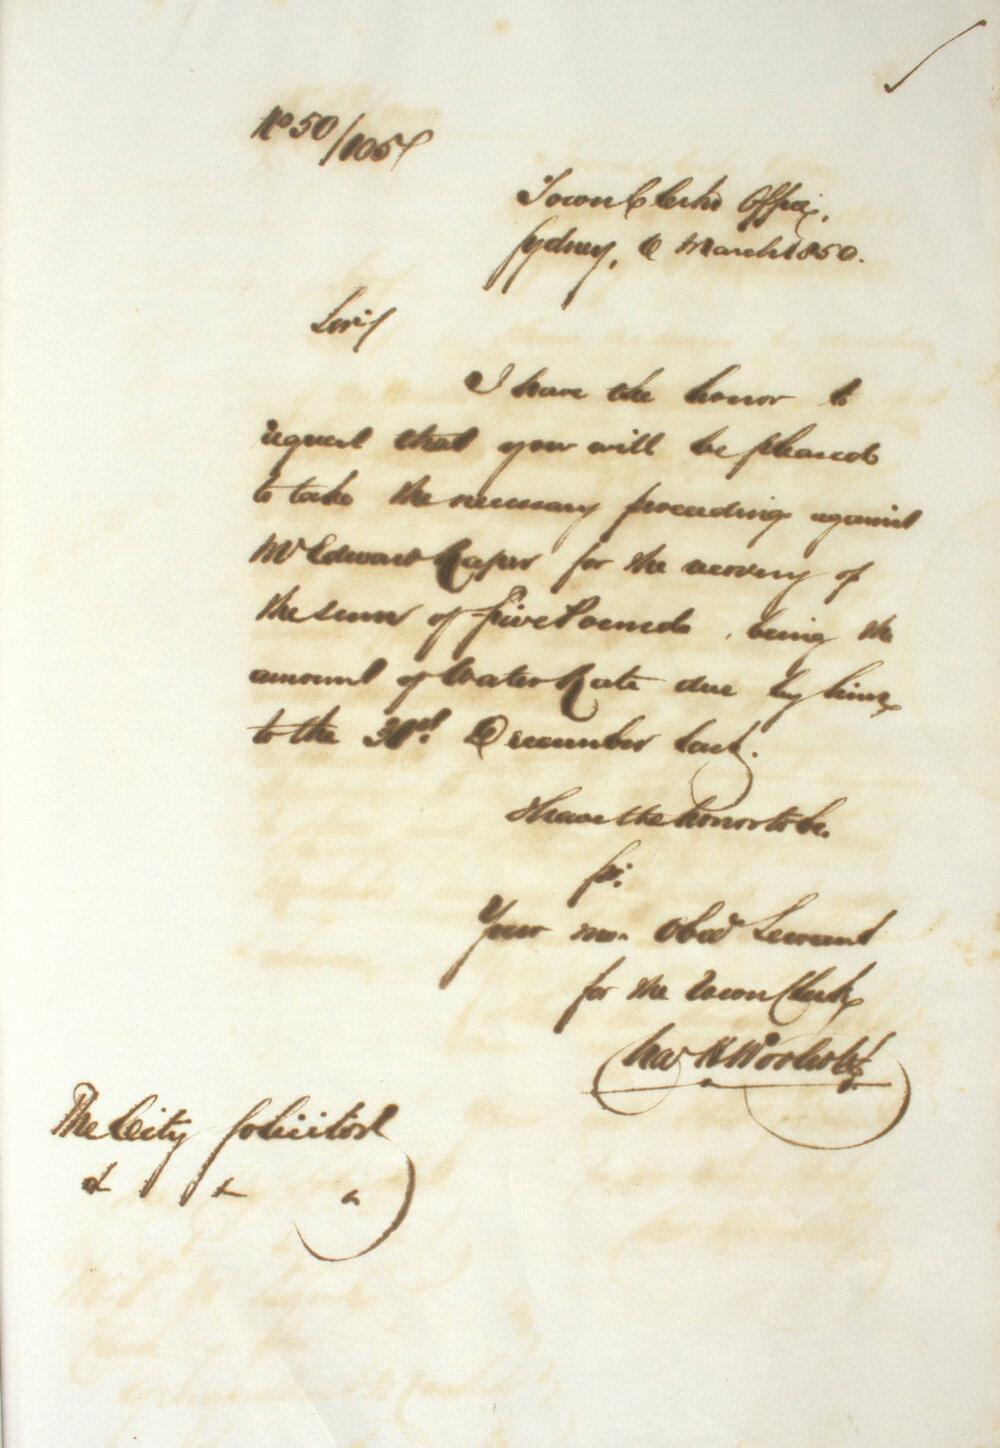 No 50/105
Town Clerks Office,
Sydney, 6 March 1850.
Sir,
I have the honor to
request that you will be pleased
to take the necessary proceedings against
Mr Edward Raper for the recovery of
the sum of Five Pounds, being the
amount of Water Rate due by him
to the 31st December last.
I have the honor to be,
Sir,
Your mo. Obed Servant
for the Town Clerk
Chas H Woolcott
The City Solicitor
& & &